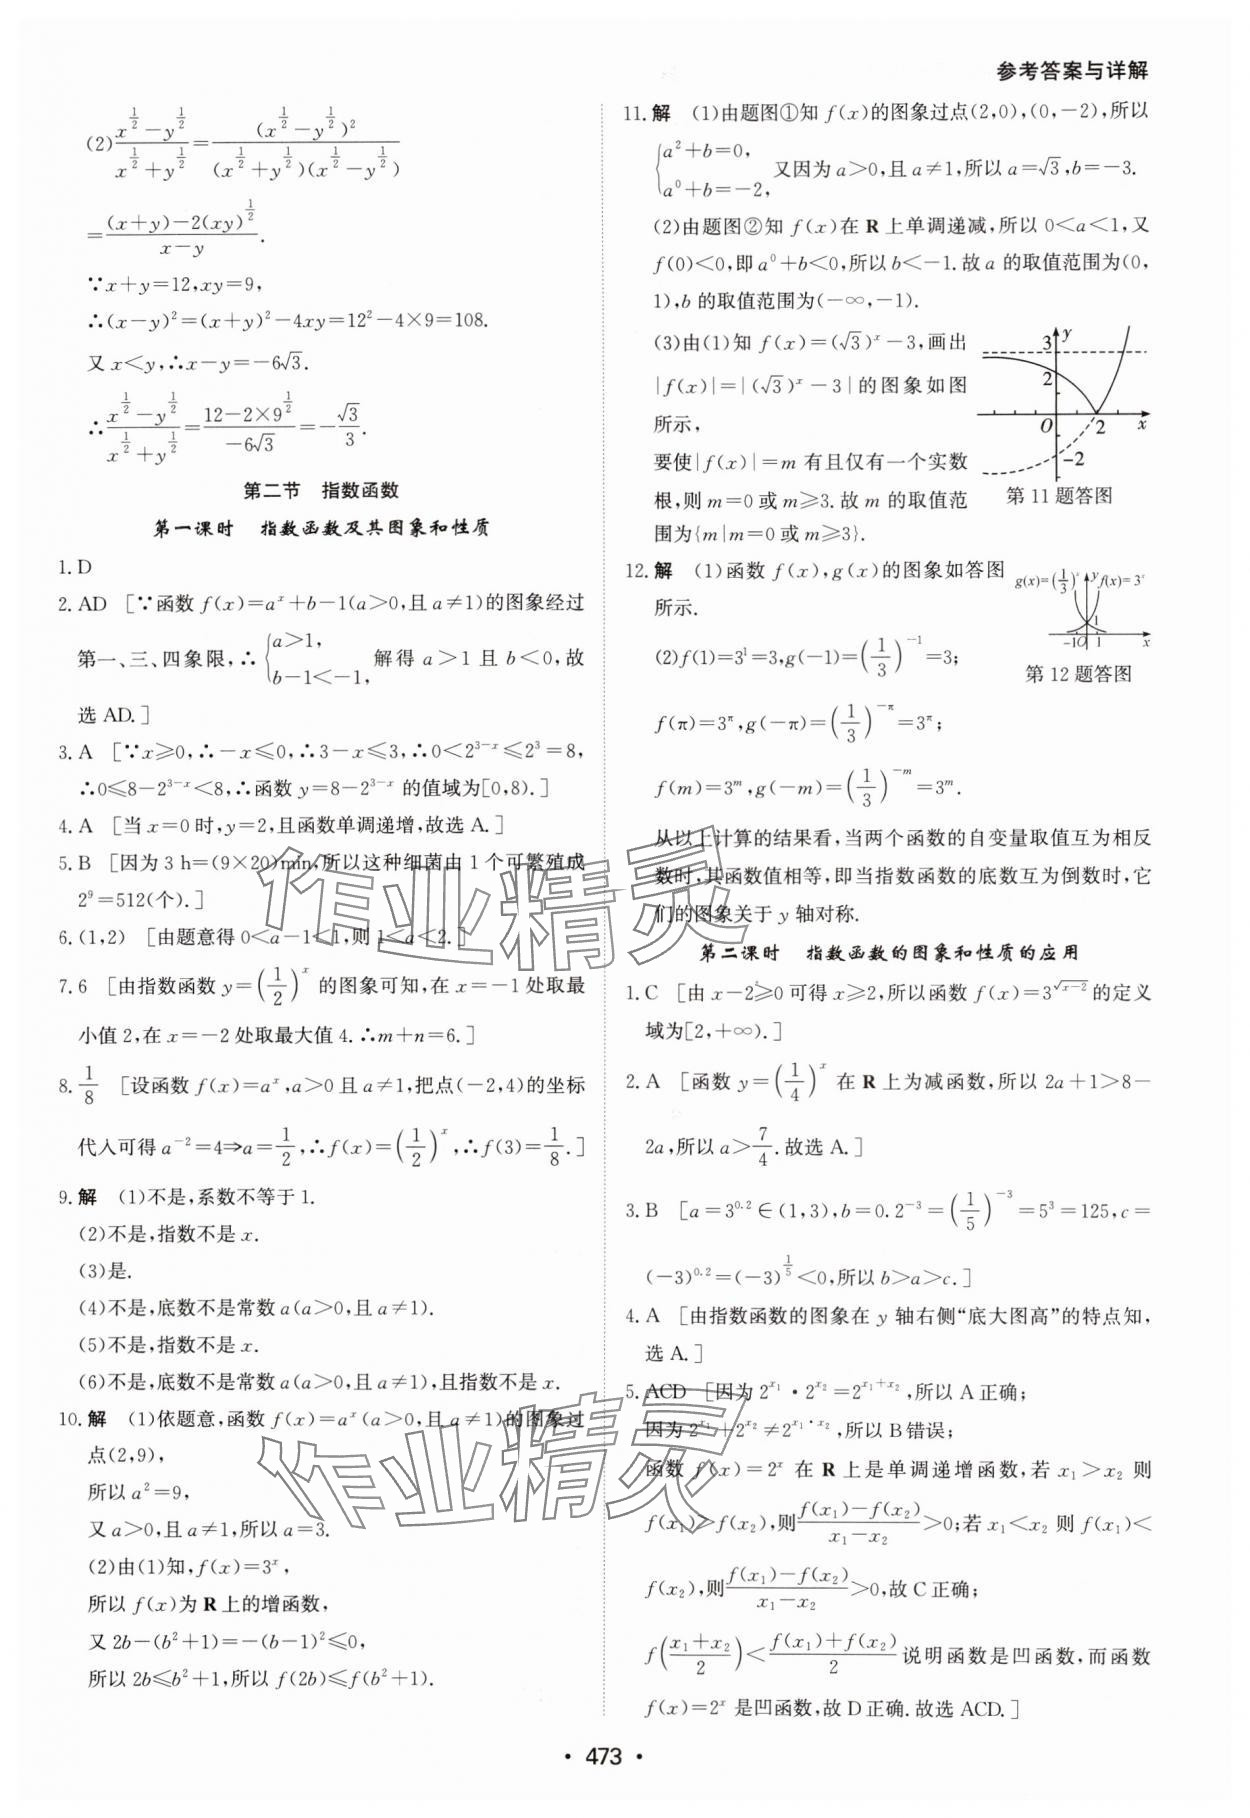 参考答案与详解
(2)\frac{x^{\frac{1}{2}}-y^{\frac{1}{2}}}{x^{\frac{1}{2}}+y^{\frac{1}{2}}}=\frac{(x^{\frac{1}{2}}-y^{\frac{1}{2}})^2}{(x^{\frac{1}{2}}+y^{\frac{1}{2}})(x^{\frac{1}{2}}-y^{\frac{1}{2}})}
=\frac{(x+y)-2(xy)^{\frac{1}{2}}}{x-y}.
∵x+y=12,xy=9,
∴(x-y)²=(x+y)²-4xy=12²-4×9=108.
又 x<y,∴x-y=-6√3.
∴\frac{x^{\frac{1}{2}}-y^{\frac{1}{2}}}{x^{\frac{1}{2}}+y^{\frac{1}{2}}}=\frac{12-2×9^{\frac{1}{2}}}{-6√3}=-\frac{√3}{3}.
第二节 指数函数
第一课时 指数函数及其图象和性质
1. D
2. AD [∵函数 f(x)=a^x+b-1(a>0,且 a≠1)的图象经过
第一、三、四象限,∴{a>1, b-1<-1, 解得 a>1 且 b<0,故
选 AD.]
3. A [∵x≥0,∴-x≤0,∴3-x≤3,∴0<2^{3-x}≤2³=8,
∴0≤8-2^{3-x}<8,∴函数 y=8-2^{3-x} 的值域为[0,8).]
4. A [当 x=0 时,y=2,且函数单调递增,故选 A.]
5. B [因为 3 h=(9×20)min,所以这种细菌由 1 个可繁殖成
2⁹=512(个).]
6. (1,2) [由题意得 0<a-1<1,则 1<a<2.]
7. 6 [由指数函数 y=(\frac{1}{2})^x 的图象可知,在 x=-1 处取最
小值 2,在 x=-2 处取最大值 4.∴m+n=6.]
8. \frac{1}{8} [设函数 f(x)=a^x,a>0 且 a≠1,把点(-2,4)的坐标
代入可得 a^{-2}=4⇒a=\frac{1}{2},∴f(x)=(\frac{1}{2})^x,∴f(3)=\frac{1}{8}.]
9. 解 (1)不是,系数不等于 1.
(2)不是,指数不是 x.
(3)是.
(4)不是,底数不是常数 a(a>0,且 a≠1).
(5)不是,指数不是 x.
(6)不是,底数不是常数 a(a>0,且 a≠1),且指数不是 x.
10. 解 (1)依题意,函数 f(x)=a^x(a>0,且 a≠1)的图象过
点(2,9),
所以 a²=9,
又 a>0,且 a≠1,所以 a=3.
(2)由(1)知,f(x)=3^x,
所以 f(x)为 R 上的增函数,
又 2b-(b²+1)=-(b-1)²≤0,
所以 2b≤b²+1,所以 f(2b)≤f(b²+1).
11. 解 (1)由题图①知 f(x)的图象过点(2,0),(0,-2),所以
{a²+b=0, a⁰+b=-2, 又因为 a>0,且 a≠1,所以 a=√3,b=-3.
(2)由题图②知 f(x)在 R 上单调递减,所以 0<a<1,又
f(0)<0,即 a⁰+b<0,所以 b<-1.故 a 的取值范围为(0,
1),b 的取值范围为(-∞,-1).
(3)由(1)知 f(x)=(√3)^x-3,画出
|f(x)|=|(√3)^x-3|的图象如图
所示,
要使|f(x)|=m 有且仅有一个实数
根,则 m=0 或 m≥3.故 m 的取值范
围为{m|m=0 或 m≥3}.
3 y
2
O 2 x
-2
第 11 题答图
12. 解 (1)函数 f(x),g(x)的图象如答图
所示.
g(x)=(\frac{1}{3})^x y f(x)=3^x
1
-1 O 1 x
第 12 题答图
(2)f(1)=3¹=3,g(-1)=(\frac{1}{3})^{-1}=3;
f(π)=3^π,g(-π)=(\frac{1}{3})^{-π}=3^π;
f(m)=3^m,g(-m)=(\frac{1}{3})^{-m}=3^m.
从以上计算的结果看,当两个函数的自变量取值互为相反
数时,其函数值相等,即当指数函数的底数互为倒数时,它
们的图象关于 y 轴对称.
第二课时 指数函数的图象和性质的应用
1. C [由 x-2≥0 可得 x≥2,所以函数 f(x)=3^{\sqrt{x-2}} 的定义
域为[2,+∞).]
2. A [函数 y=(\frac{1}{4})^x 在 R 上为减函数,所以 2a+1>8-
2a,所以 a>\frac{7}{4}.故选 A.]
3. B [a=3^{0.2}∈(1,3),b=0.2^{-3}=(\frac{1}{5})^{-3}=5³=125,c=
(-3)^{0.2}=(-3)^{\frac{1}{5}}<0,所以 b>a>c.]
4. A [由指数函数的图象在 y 轴右侧“底大图高”的特点知,
选 A.]
5. ACD [因为 2^{x₁}·2^{x₂}=2^{x₁+x₂},所以 A 正确;
因为 2^{x₁}+2^{x₂}≠2^{x₁·x₂},所以 B 错误;
函数 f(x)=2^x 在 R 上是单调递增函数,若 x₁>x₂ 则
f(x₁)>f(x₂),则\frac{f(x₁)-f(x₂)}{x₁-x₂}>0;若 x₁<x₂ 则 f(x₁)<
f(x₂),则\frac{f(x₁)-f(x₂)}{x₁-x₂}>0,故 C 正确;
f(\frac{x₁+x₂}{2})<\frac{f(x₁)+f(x₂)}{2}说明函数是凹函数,而函数
f(x)=2^x 是凹函数,故 D 正确.故选 ACD.]
作业精灵
作业精灵
· 473 ·